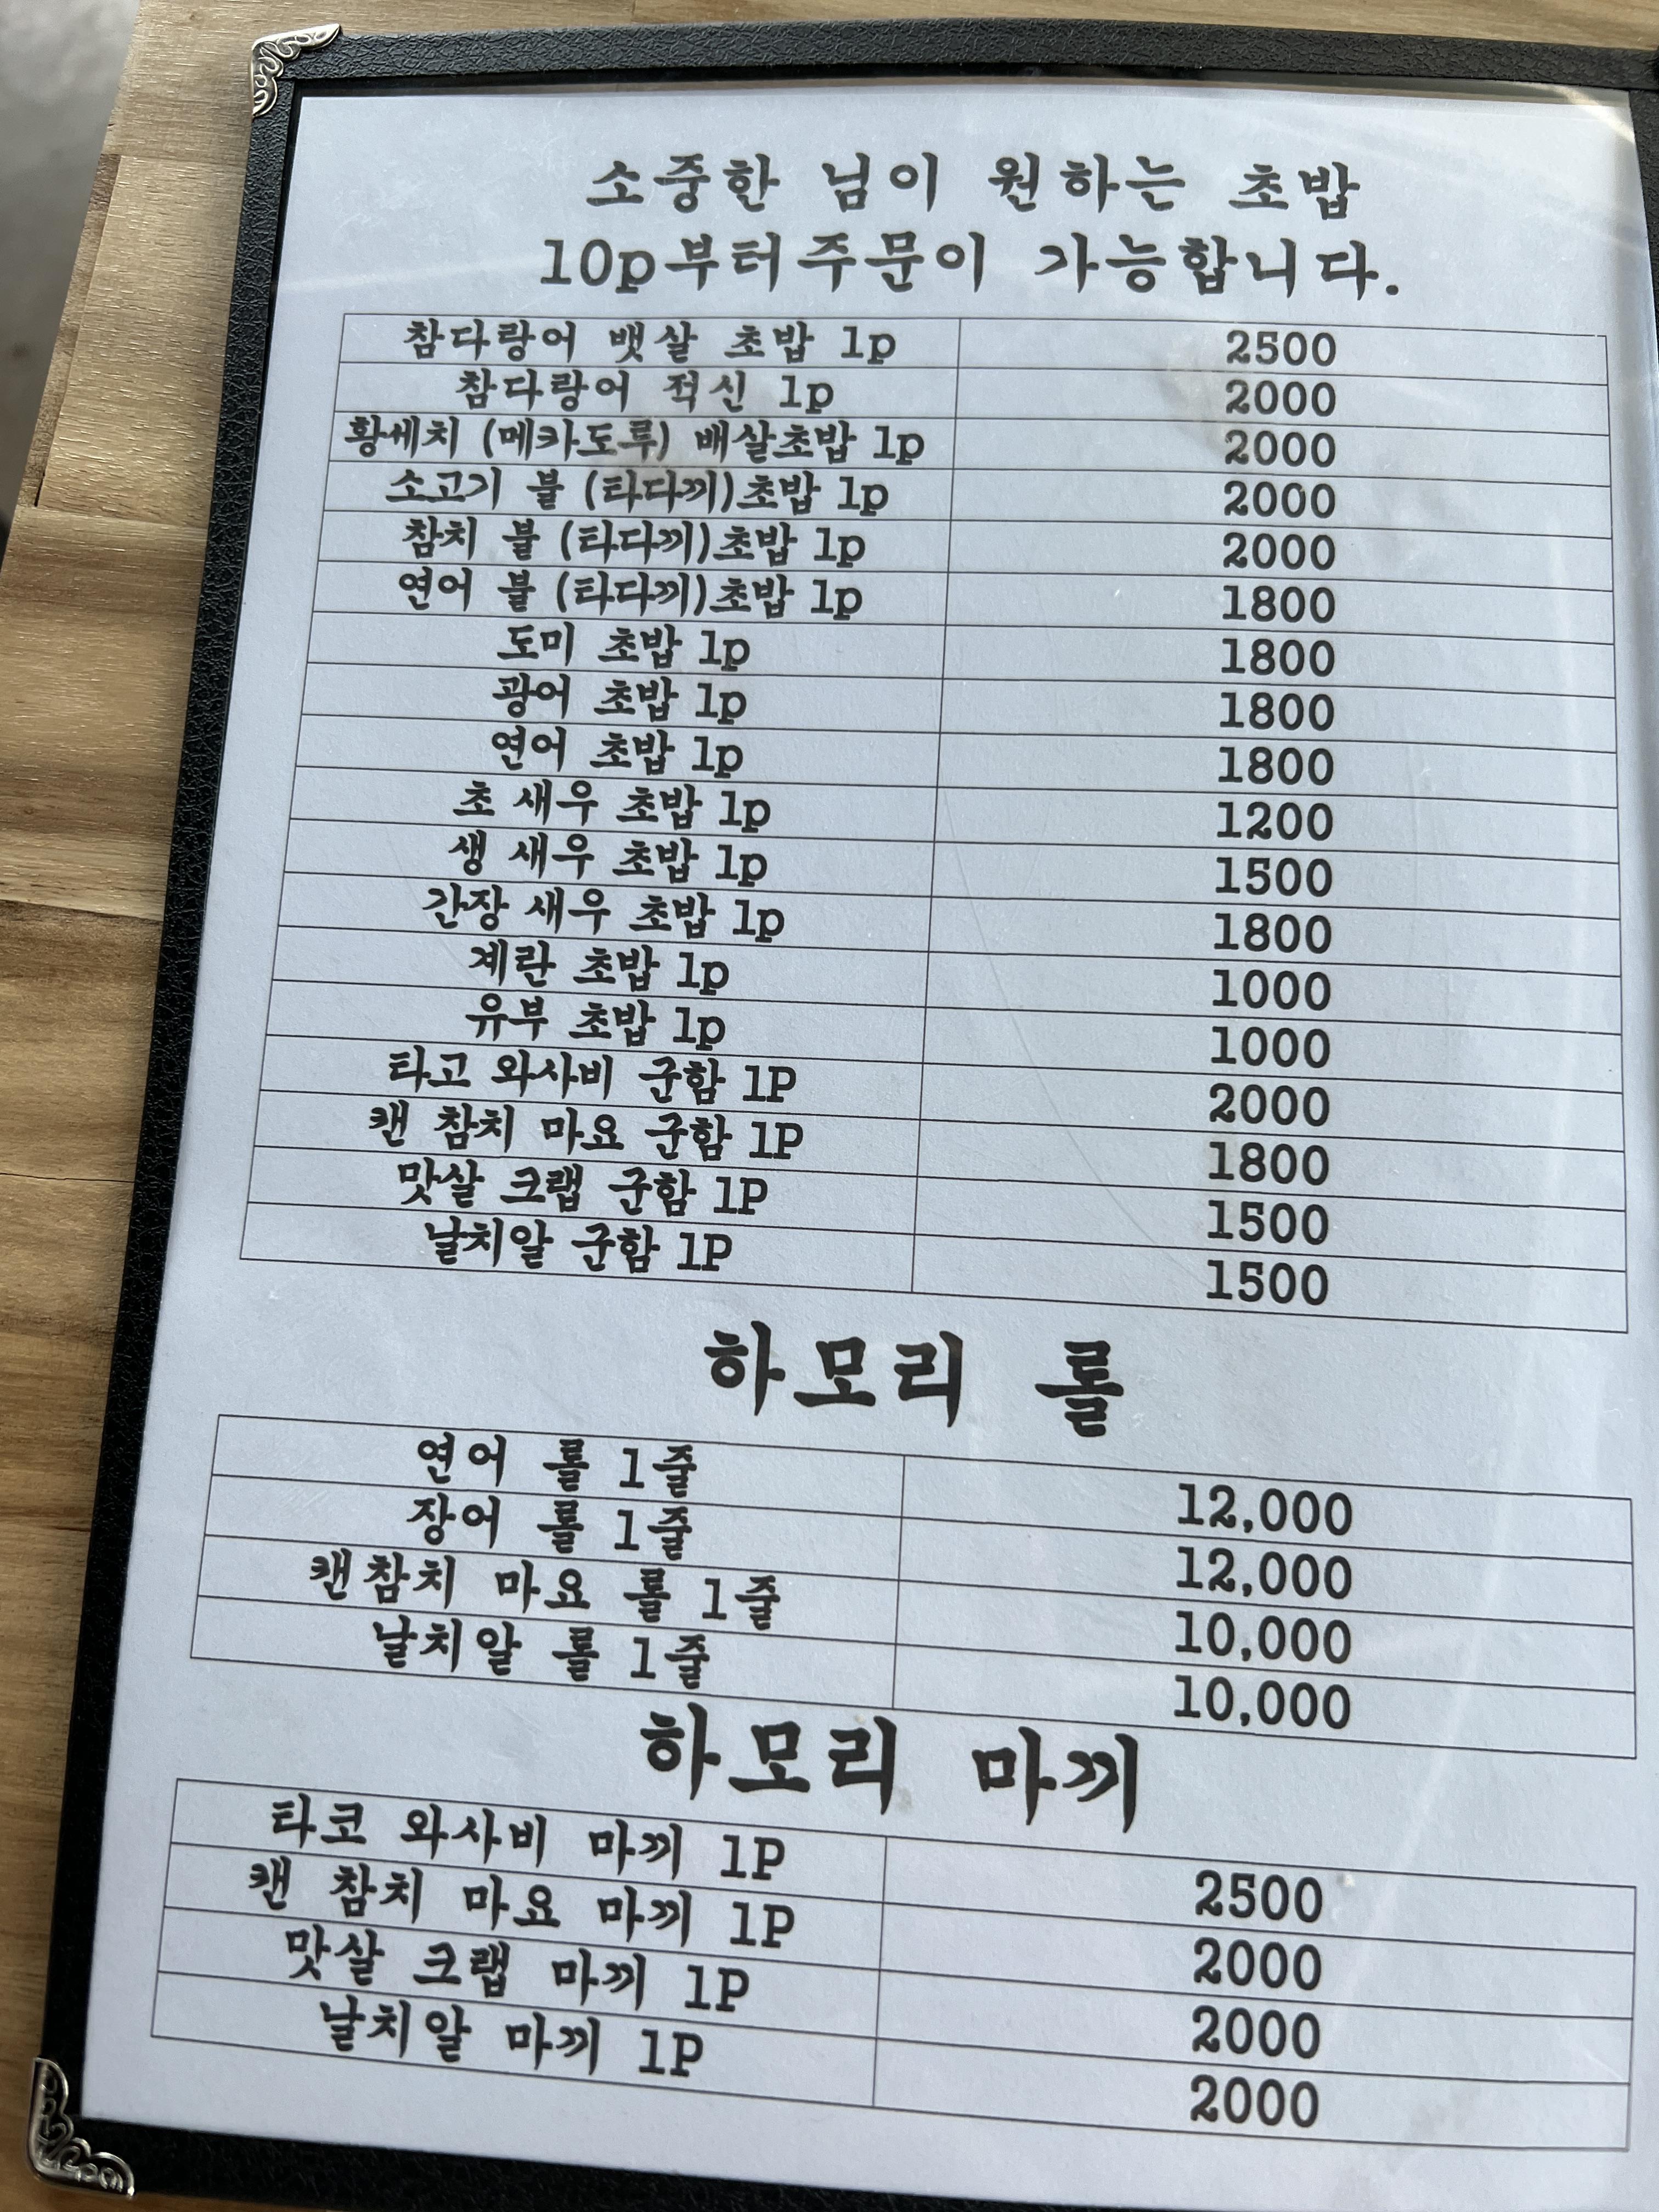 소중한 님이 원하는 초밥
10p부터주문이 가능합니다.
참다랑어 뱃살 초밥 1p 2500
참다랑어 적신 1p 2000
황세치 (메카도룩) 배살초밥 1p 2000
소고기 불 (타다끼)초밥 1p 2000
참치 불 (타다끼)초밥 1p 2000
연어 불 (타다끼)초밥 1p 1800
도미 초밥 1p 1800
광어 초밥 1p 1800
연어 초밥 1p 1800
초 새우 초밥 1p 1200
생 새우 초밥 1p 1500
간장 새우 초밥 1p 1800
계란 초밥 1p 1000
유부 초밥 1p 1000
타고 와사비 군함 1P 2000
캔 참치 마요 군함 1P 1800
맛살 크랩 군함 1P 1500
날치알 군함 1P 1500
하모리 롤
연어 롤 1줄 12,000
장어 롤 1줄 12,000
캔참치 마요 롤 1줄 10,000
날치알 롤 1줄 10,000
하모리 마끼
타코 와사비 마끼 1P 2500
캔 참치 마요 마끼 1P 2000
맛살 크랩 마끼 1P 2000
날치알 마끼 1P 2000